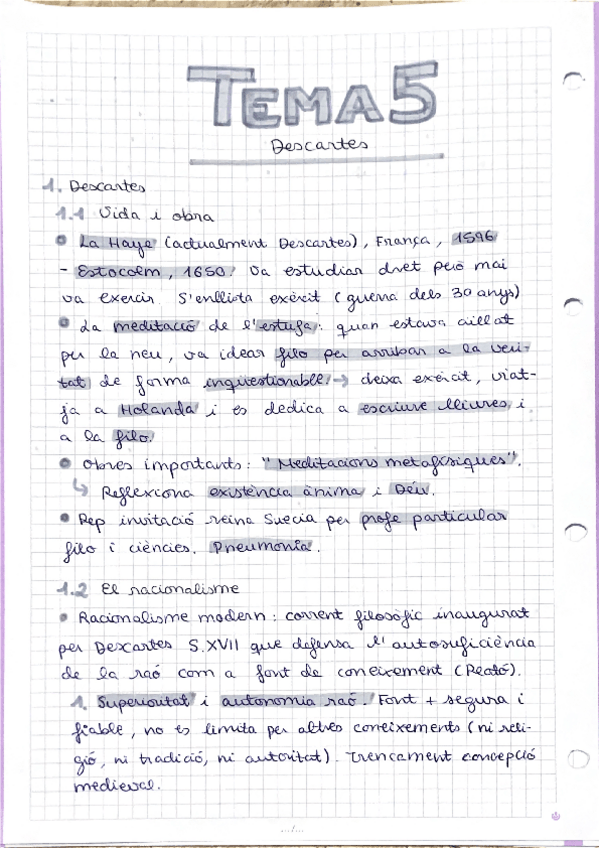 TEMA 5
Descartes
1. Descartes
1.1 Vida i obra
• La Haye (actualment Descartes), França, 1596
- Estocolm, 1650. Va estudiar dret però mai
va exercir. S'enllista exèrcit (guerra dels 30 anys)
• La meditació de l'estufa: quan estava aïllat
per la neu, va idear filo per arribar a la veri-
tat de forma inqüestionable. → deixa exèrcit, viat-
ja a Holanda i es dedica a escriure llibres i
a la filo.
• Obres importants: "Meditacions metafísiques".
↳ Reflexiona existència ànima i Déu.
• Rep invitació reina Suècia per profe particular
filo i ciències. Pneumonia.
1.2 El racionalisme
• Racionalisme modern: corrent filosòfic inaugurat
per Descartes S.XVII que defensa l'autosuficiència
de la raó com a font de coneixement (Plató).
1. Superioritat i autonomia raó. Font + segura i
fiable, no es limita per altres coneixements (ni reli-
gió, ni tradició, ni autoritat). Trencament concepció
medieval.
.../...